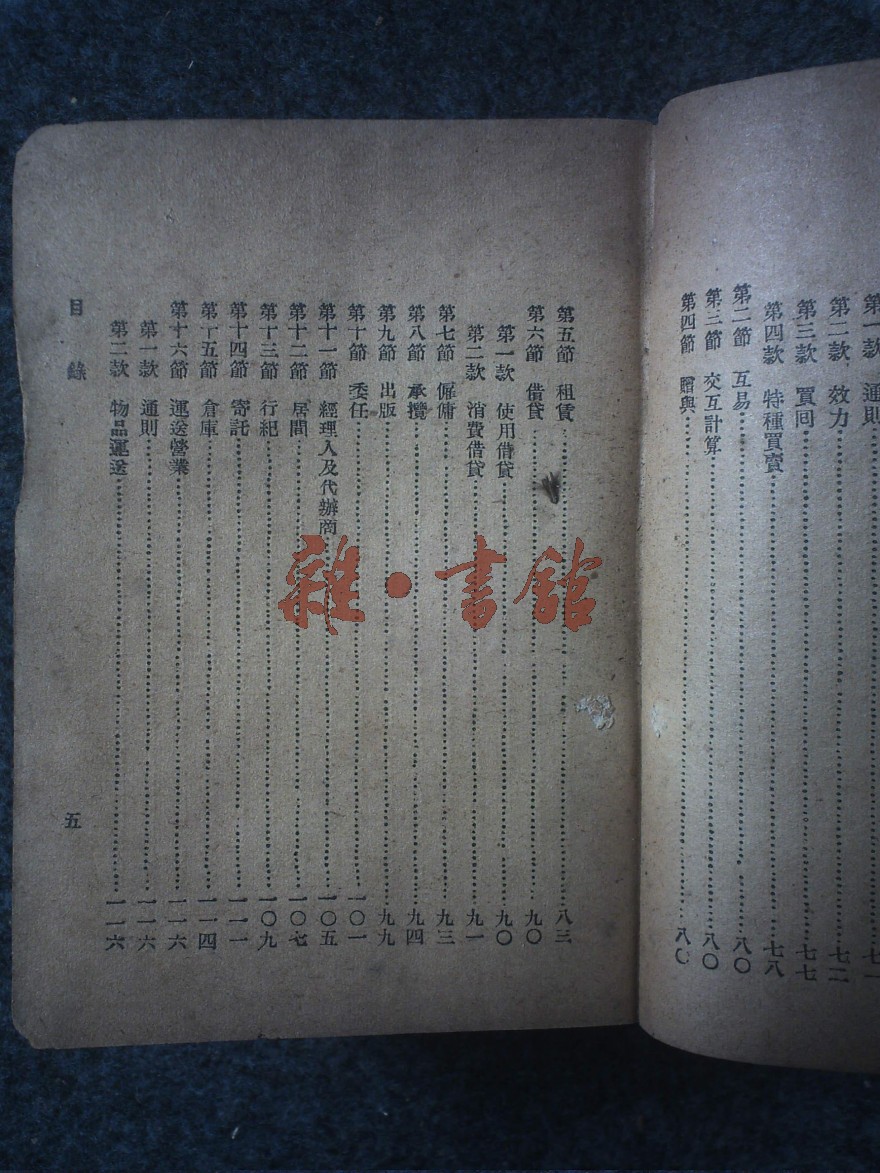 第一款　通則……七一
第二款、效力……七二
第三款　買回……七七
第四款　特種買賣……七八
第二節　互易……八〇
第三節　交互計算……八〇
第四節　贈與……八〇
第五節　租賃……八三
第六節　借貸……九〇
第一款　使用借貸……九〇
第二款　消費借貸……九一
第七節　僱傭……九三
第八節　承攬……九四
第九節　出版……九九
第十節　委任……一〇一
第十一節　經理人及代辦商……一〇五
第十二節　居間……一〇七
第十三節　行紀……一〇九
第十四節　寄託……一一一
第十五節　倉庫……一一四
第十六節　運送營業……一一六
第一款　通則……一一六
第二款　物品運送……一一六
目錄　五
雜·書館